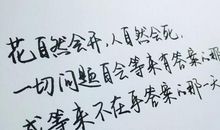 花自然会开，人自然会死，
一切问题自会等来有答案的那
或等来不在乎答案的那一天